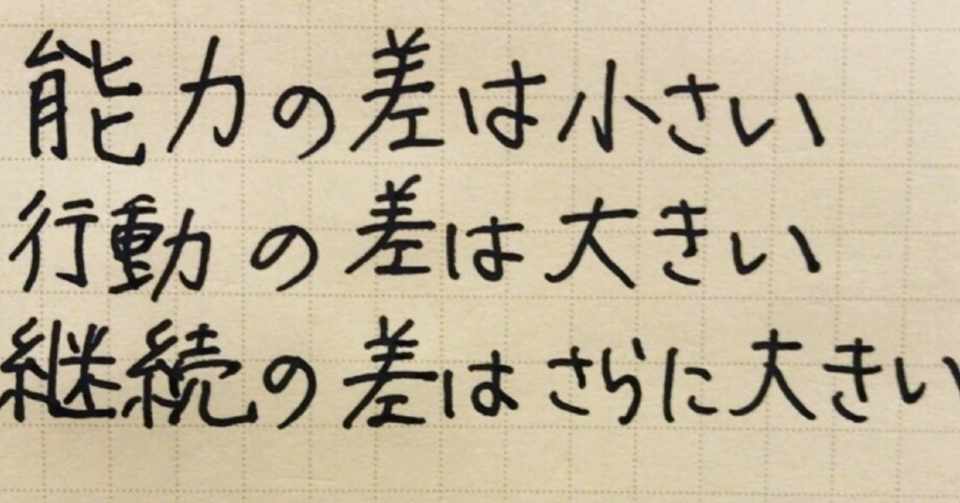 能力の差は小さい
行動の差は大きい
継続の差はさらに大きい